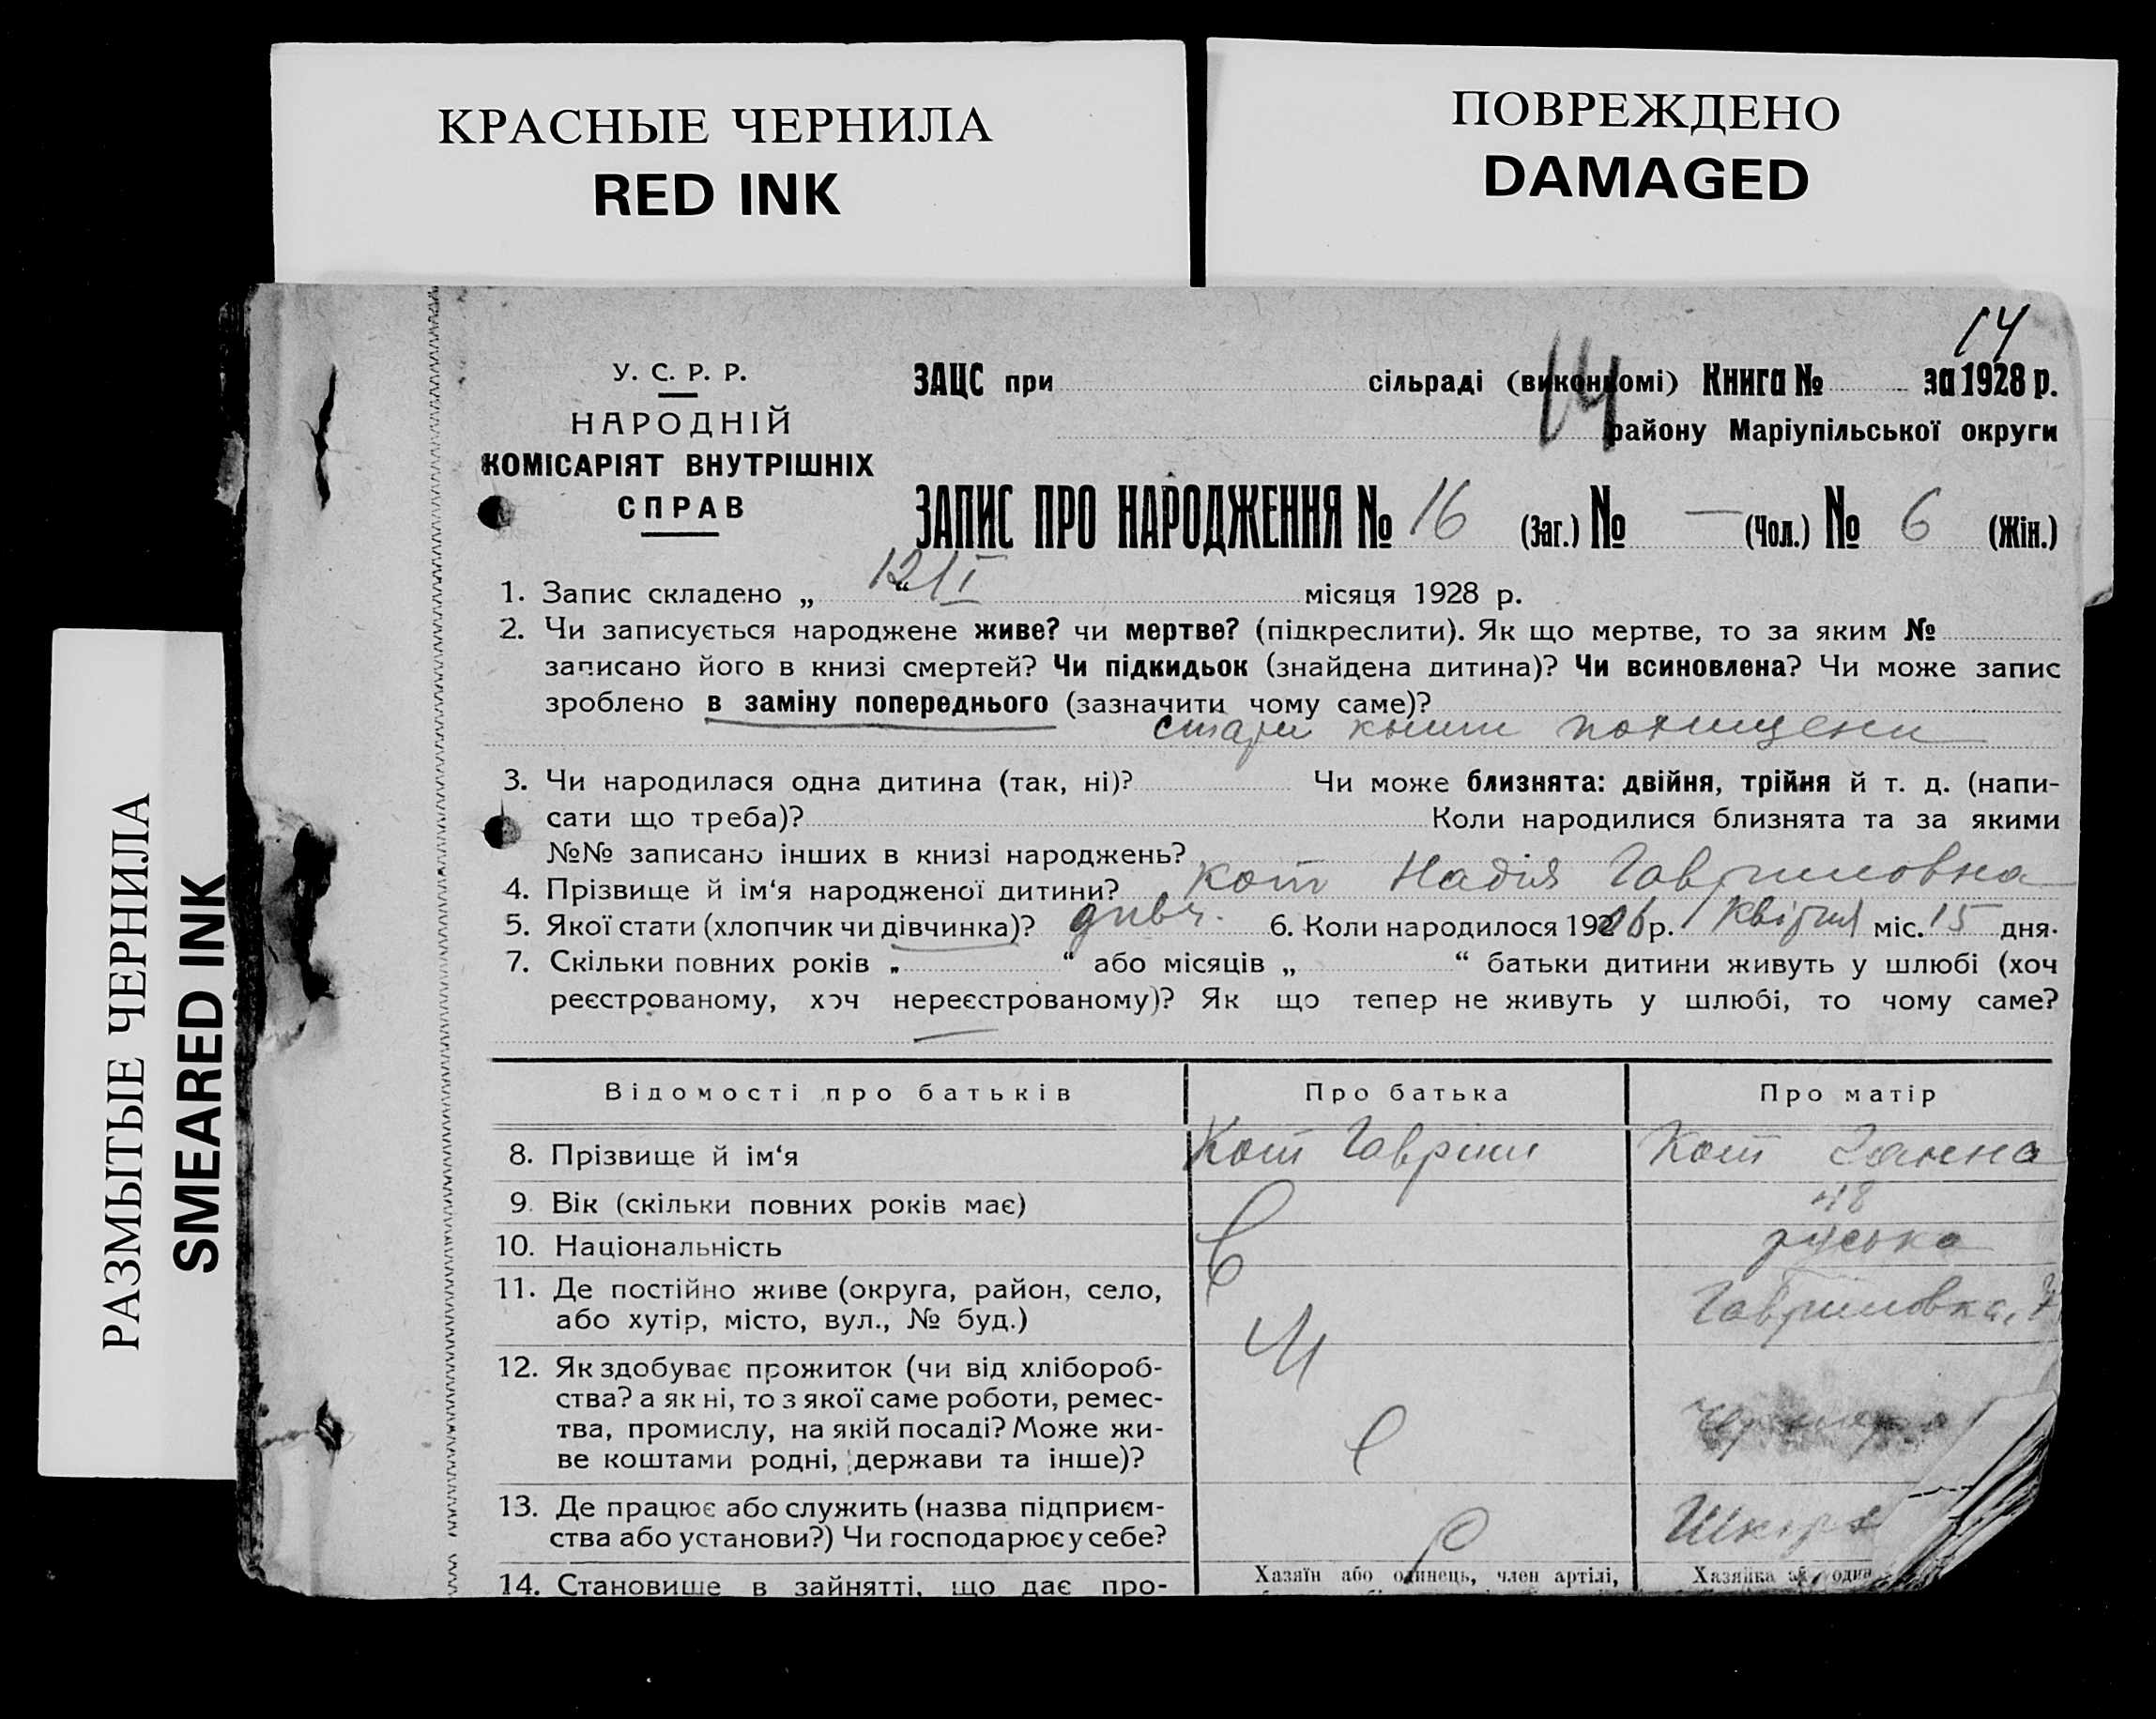 КРАСНЫЕ ЧЕРНИЛА
RED INK
ПОВРЕЖДЕНО
DAMAGED
РАЗМЫТЫЕ ЧЕРНИЛА
SMEARED INK
14
У. С. Р. Р.
НАРОДНІЙ
КОМІСАРІЯТ ВНУТРІШНІХ
СПРАВ
ЗАЦС при сільраді (виконкомі) Книга № за 1928 р.
14
району Маріупільської округи
ЗАПИС ПРО НАРОДЖЕННЯ № 16 (Заг.) № — (Чол.) № 6 (Жін.)
1. Запис складено „ 12/I “ місяця 1928 р.
2. Чи записується народжене живе? чи мертве? (підкреслити). Як що мертве, то за яким №
записано його в книзі смертей? Чи підкидьок (знайдена дитина)? Чи всиновлена? Чи може запис
зроблено в заміну попереднього (зазначити чому саме)?
стари книги похищени
3. Чи народилася одна дитина (так, ні)? Чи може близнята: двійня, трійня й т. д. (напи-
сати що треба)? Коли народилися близнята та за якими
№№ записано інших в книзі народжень?
4. Прізвище й ім‘я народженої дитини? Кот Надія Гавриловна
5. Якої стати (хлопчик чи дівчинка)? дивч. 6. Коли народилося 1906 р. Квітня міс. 15 дня.
7. Скільки повних років „ “ або місяців „ “ батьки дитини живуть у шлюбі (хоч
реєстрованому, хоч нереєстрованому)? Як що тепер не живуть у шлюбі, то чому саме?
—
Відомості про батьків Про батька Про матір
8. Прізвище й ім‘я Кот Гаврил Кот Ганна
9. Вік (скільки повних років має) 48
10. Національність руська
11. Де постійно живе (округа, район, село, Гавриловка,
або хутір, місто, вул., № буд.)
12. Як здобуває прожиток (чи від хлібороб-
ства? а як ні, то з якої саме роботи, ремес-
тва, промислу, на якій посаді? Може жи-
ве коштами родні, держави та інше)?
13. Де працює або служить (назва підприєм-
ства або установи?) Чи господарює у себе?
14. Становище в зайнятті, що дає про- Хазяїн або одинець, член артілі, Хазяйка або один